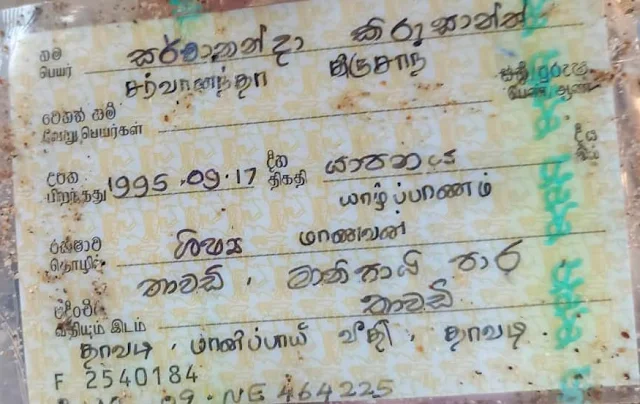 නම
பெயர் සර්වානන්දා කිරුසාන්ත්
சர்வானந்தா கிருசாந்
ස්ත්‍රී/පුරුෂ
பெண்/ஆண்
වෙනත් නම්
வேறு பெயர்கள்
උපන්
பிறந்தது 1995.09.17 දින
திகதி යාපනය
யாழ்ப்பாணம்
රක්ෂාව
தொழில் ශිෂ්‍ය மாணவன்
තාවඩි, මානිපායි පාර,
තාවඩි
வதியும் இடம்
தாவடி, மானிப்பாய் வீதி, தாவடி.
F 2540184
NE 464225